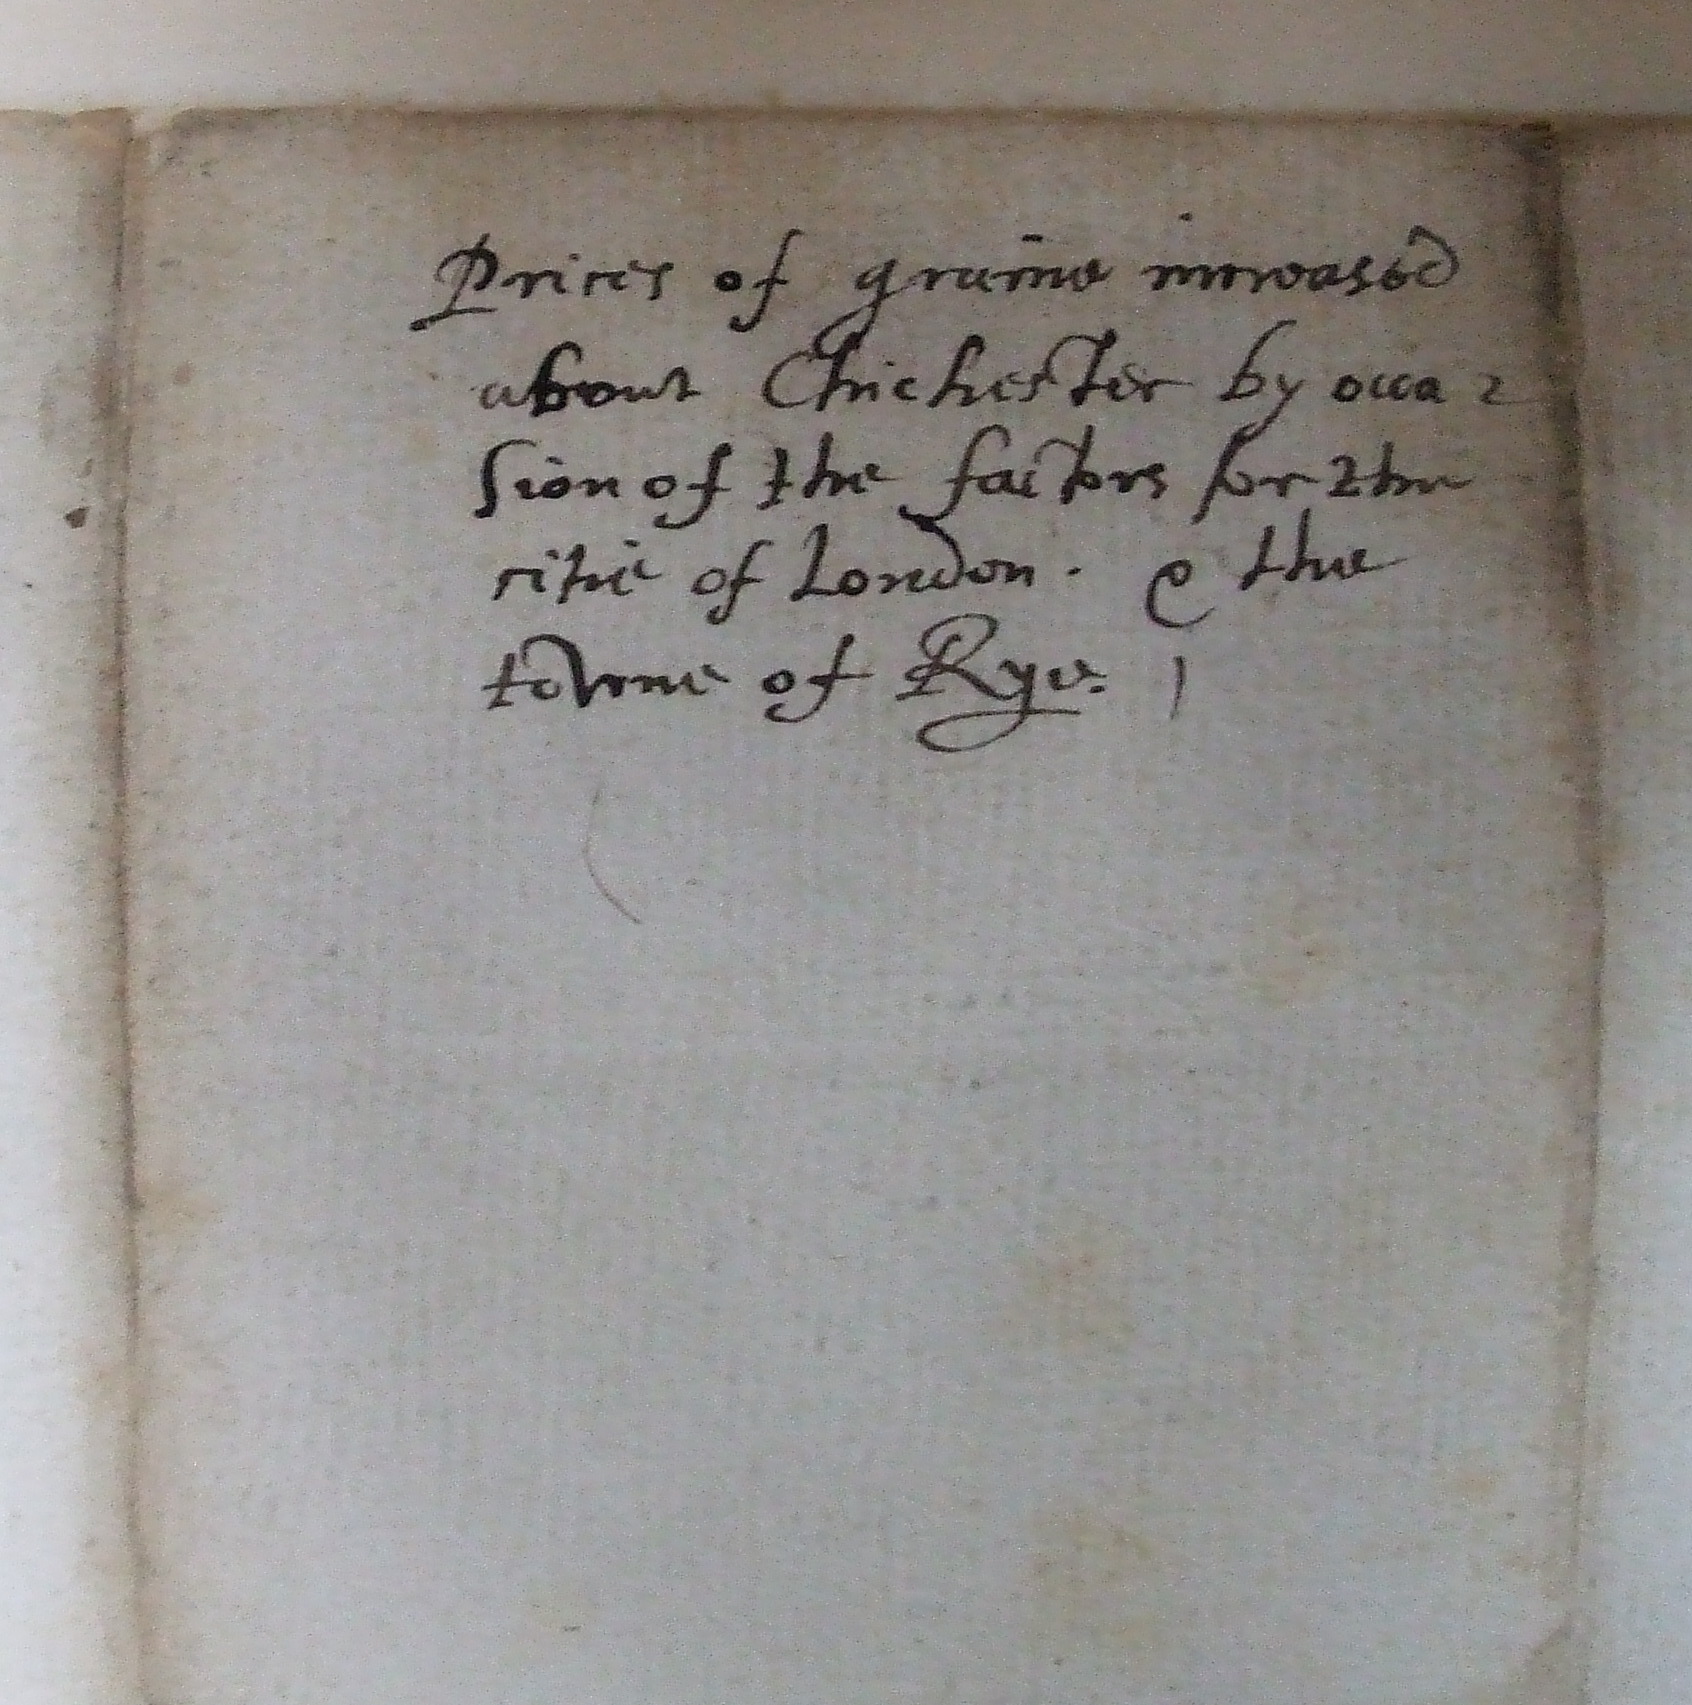 Prices of graine increased
about Chichester by occa =
sion of the factors for the
citie of London. & the
towne of Rye.